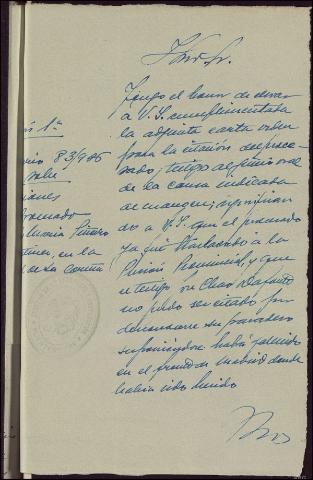 Ilmo. Sr.
Tengo el honor de elevar
a V.S. cumplimentada
la adjunta carta orden
para la citación del proce-
sado, testigo al juicio oral
de la causa indicada
al margen; significan-
do a V.S. que el procesado
ya fué trasladado a la
Prisión Provincial, y que
el testigo
no pudo ser citado por
desconocerse su paradero
suponiéndose había fallecido
en el frente de Madrid donde
había sido herido
1ª
83/936
sobre
Procesado
María Piñero
en la
de la Coruña